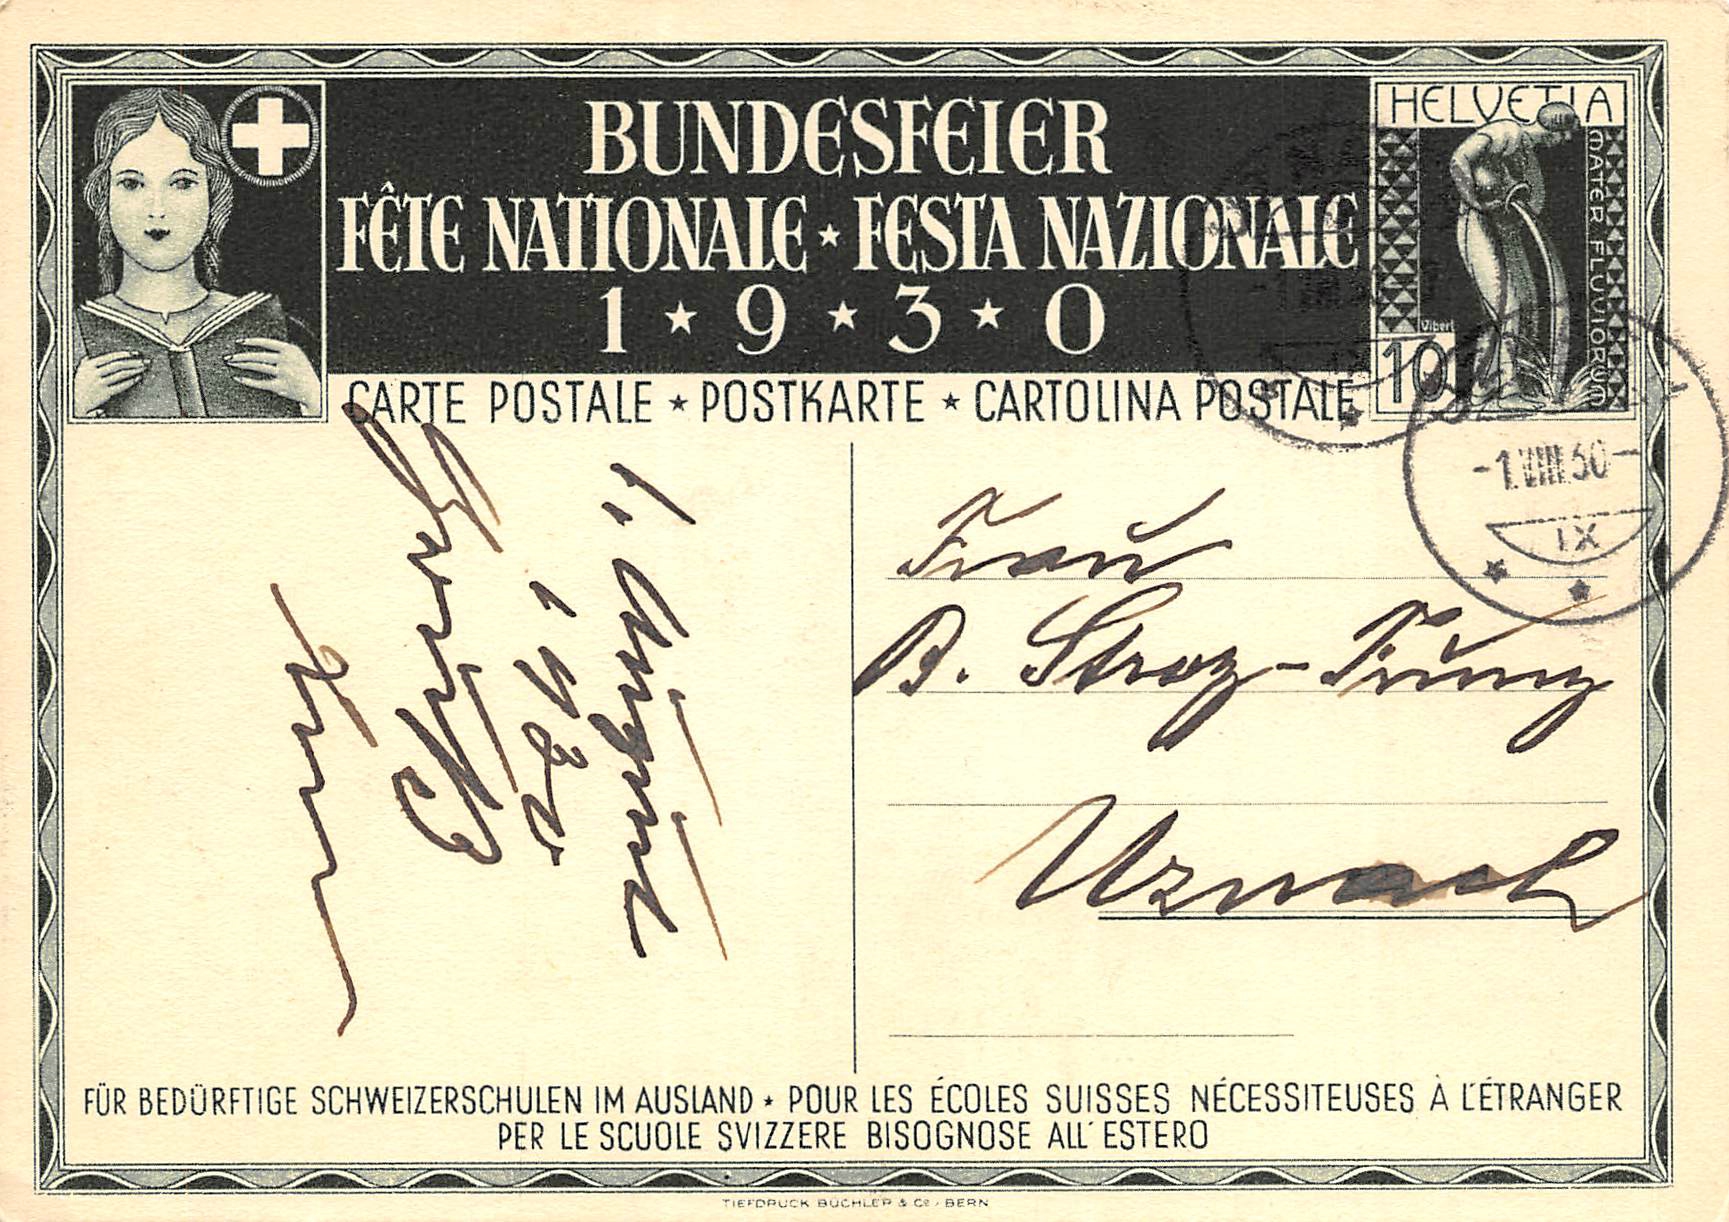 BUNDESFEIER
FÊTE NATIONALE ★ FESTA NAZIONALE
1 ★ 9 ★ 3 ★ 0
CARTE POSTALE ★ POSTKARTE ★ CARTOLINA POSTALE
HELVETIA
MATER FLUVIORUM
Vibert
10
-1.VIII.30-
IX
1. August
1930
Frau
B. Stroz-Trümy
Uznach
FÜR BEDÜRFTIGE SCHWEIZERSCHULEN IM AUSLAND ★ POUR LES ÉCOLES SUISSES NÉCESSITEUSES À L'ÉTRANGER
PER LE SCUOLE SVIZZERE BISOGNOSE ALL'ESTERO
TIEFDRUCK BÜCHLER & Co. BERN